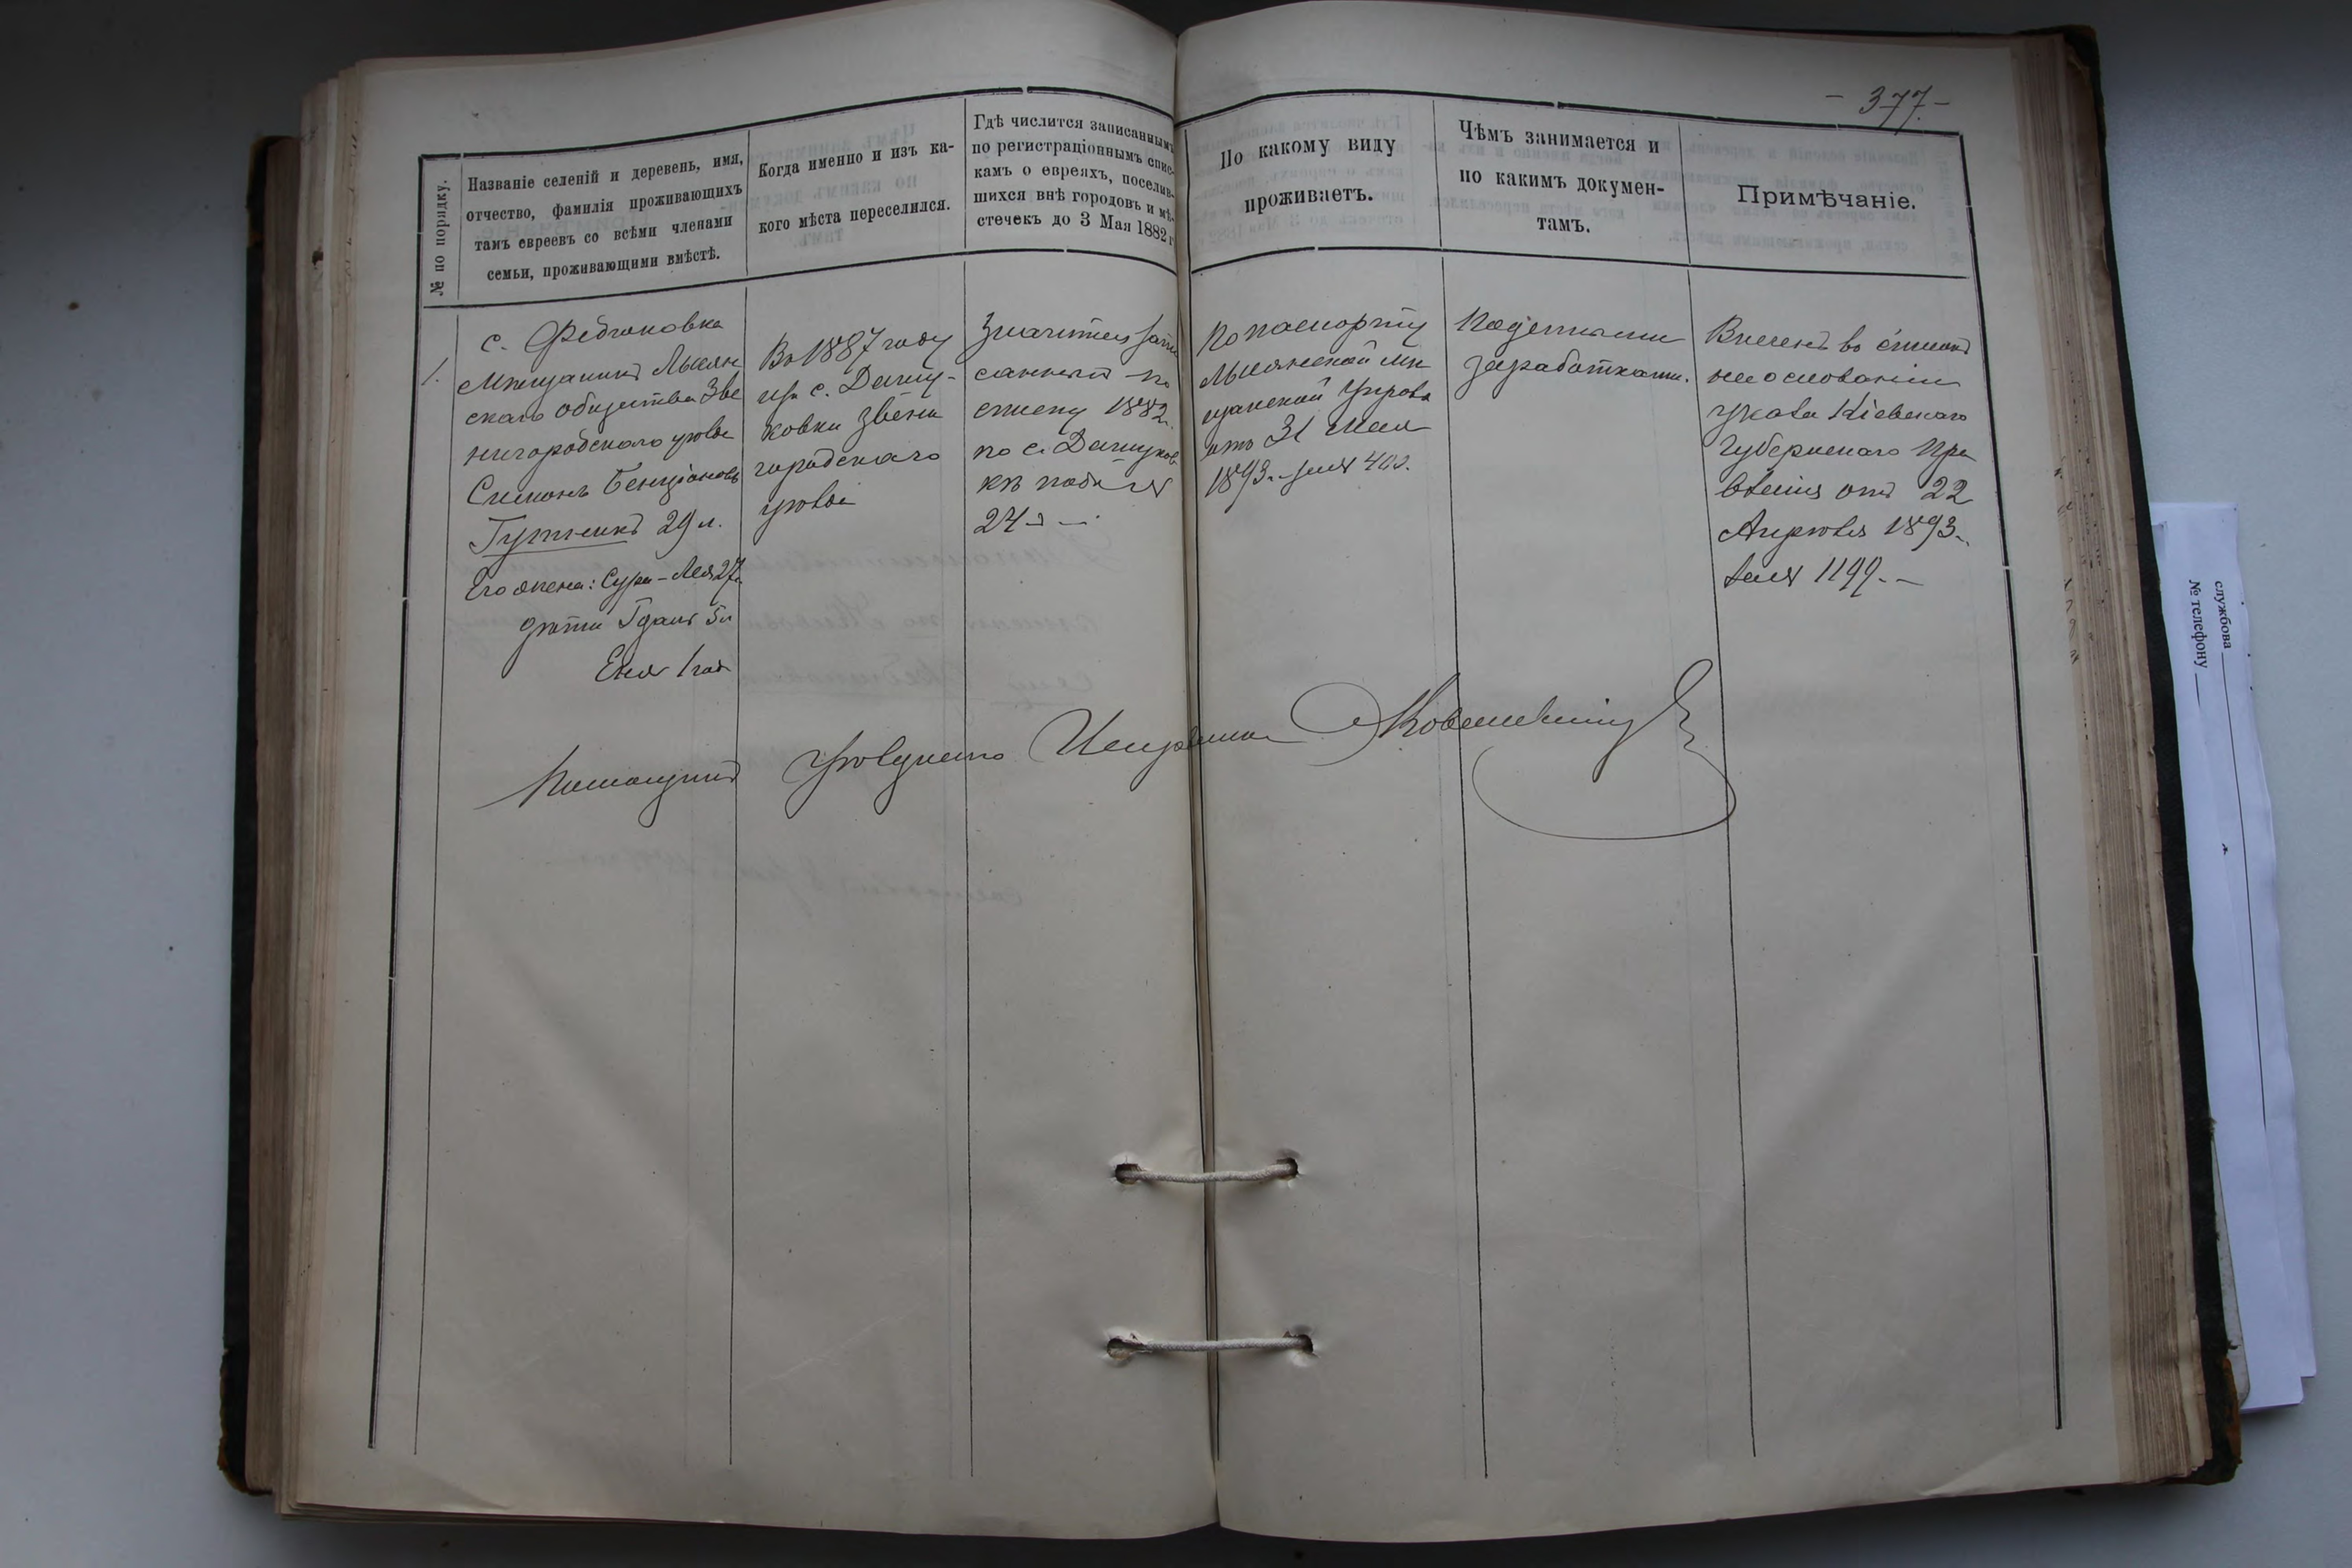 - 377 -
№ по порядку.
Названіе селеній и деревень, имя,
отчество, фамилія проживающихъ
тамъ евреевъ со всѣми членами
семьи, проживающими вмѣстѣ.
Когда именно и изъ ка-
кого мѣста переселился.
Гдѣ числится записаннымъ
по регистраціоннымъ спис-
камъ о евреяхъ, поселив-
шихся внѣ городовъ и мѣ-
стечекъ до 3 Мая 1882 г.
По какому виду
проживаетъ.
Чѣмъ занимается и
по какимъ докумен-
тамъ.
Примѣчаніе.
1.
с. Федюковка
Мѣщанинъ Лысян
скаго общества Зве
нигородскаго уѣзда
Симонъ Бенціоновъ
Гутникъ 29 л.
Его жена: Сура-Лея 27 л.
дѣти 5 л
Еня 1 год
Въ 1887 году
изъ с. Дашу-
ковки Звени
городскаго
уѣзда
Значится запи
саннымъ по
списку 1882 г.
по с. Дашуков
кѣ подъ №
24
По паспорту
Лысянской мѣ
щанской Управы
отъ 31 Мая
1893 г. за № 402.
Поденными
заработками.
Внесенъ въ списокъ
на основаніи
указа Кіевскаго
Губернскаго Пра
вленія отъ 22
Апрѣля 1893 г.
за № 1199.
Помощникъ Уѣзднаго Исправника
службова
№ телефону